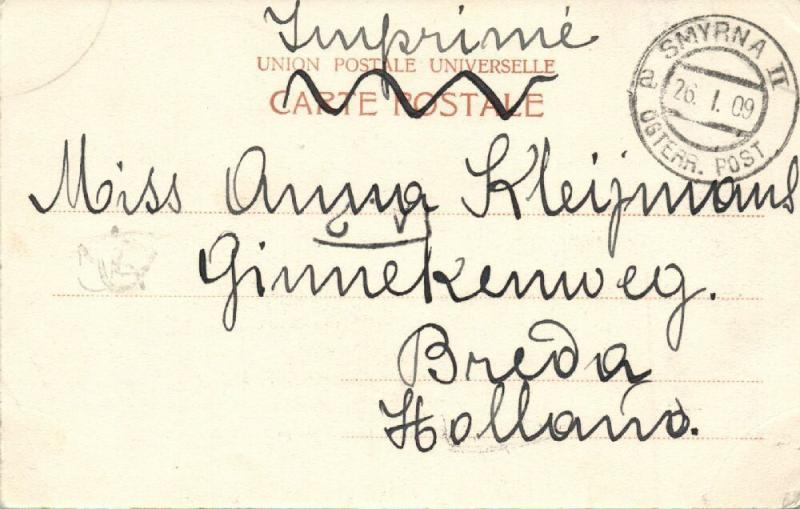 Imprimé
UNION POSTALE UNIVERSELLE
CARTE POSTALE
SMYRNA II
26. I. 09
a
ÖSTERR. POST
Miss Anna Kleijmans
Ginnekenweg.
Breda
Holland.